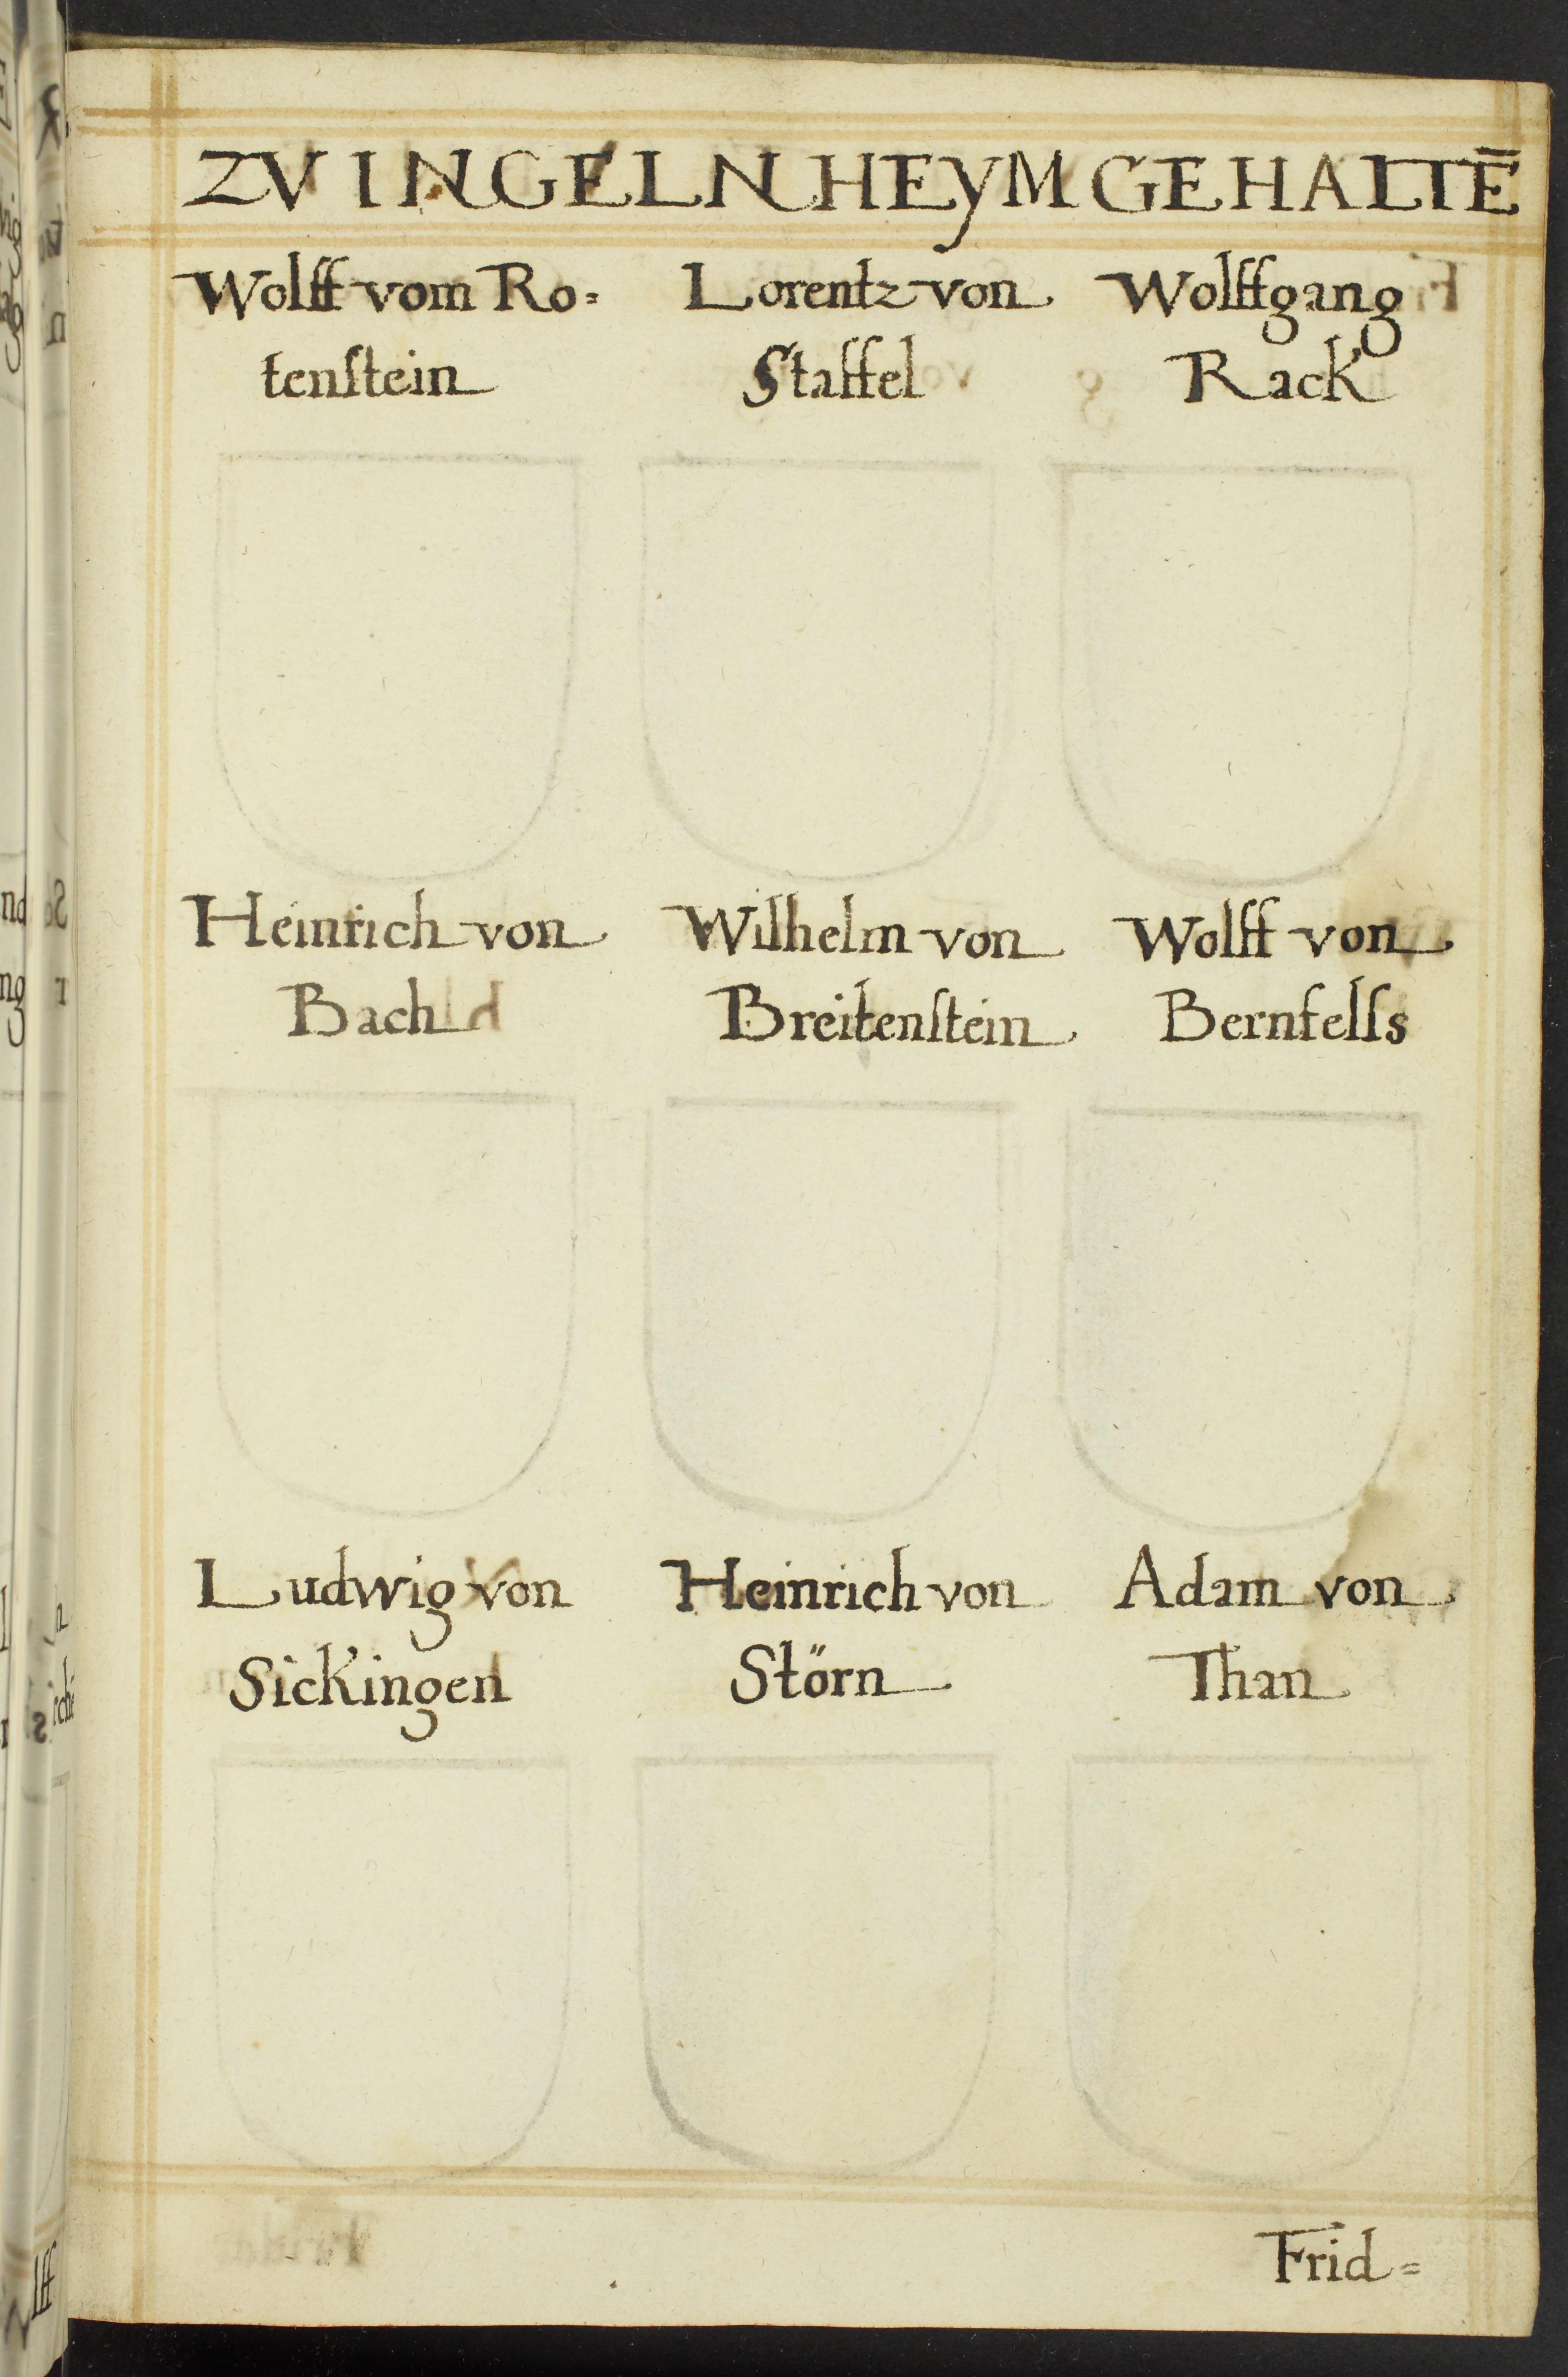 ZV INGELNHEyM GEHALTĒ
Wolff vom Ro=
tenſtein
Lorentz von
Staffel
Wolffgang
Rack
Heinrich von
Bach
Wilhelm von
Breitenſtein
Wolff von
Bernfelſs
Ludwig von
Sickingen
Heinrich von
Störn
Adam von
Than
Frid=